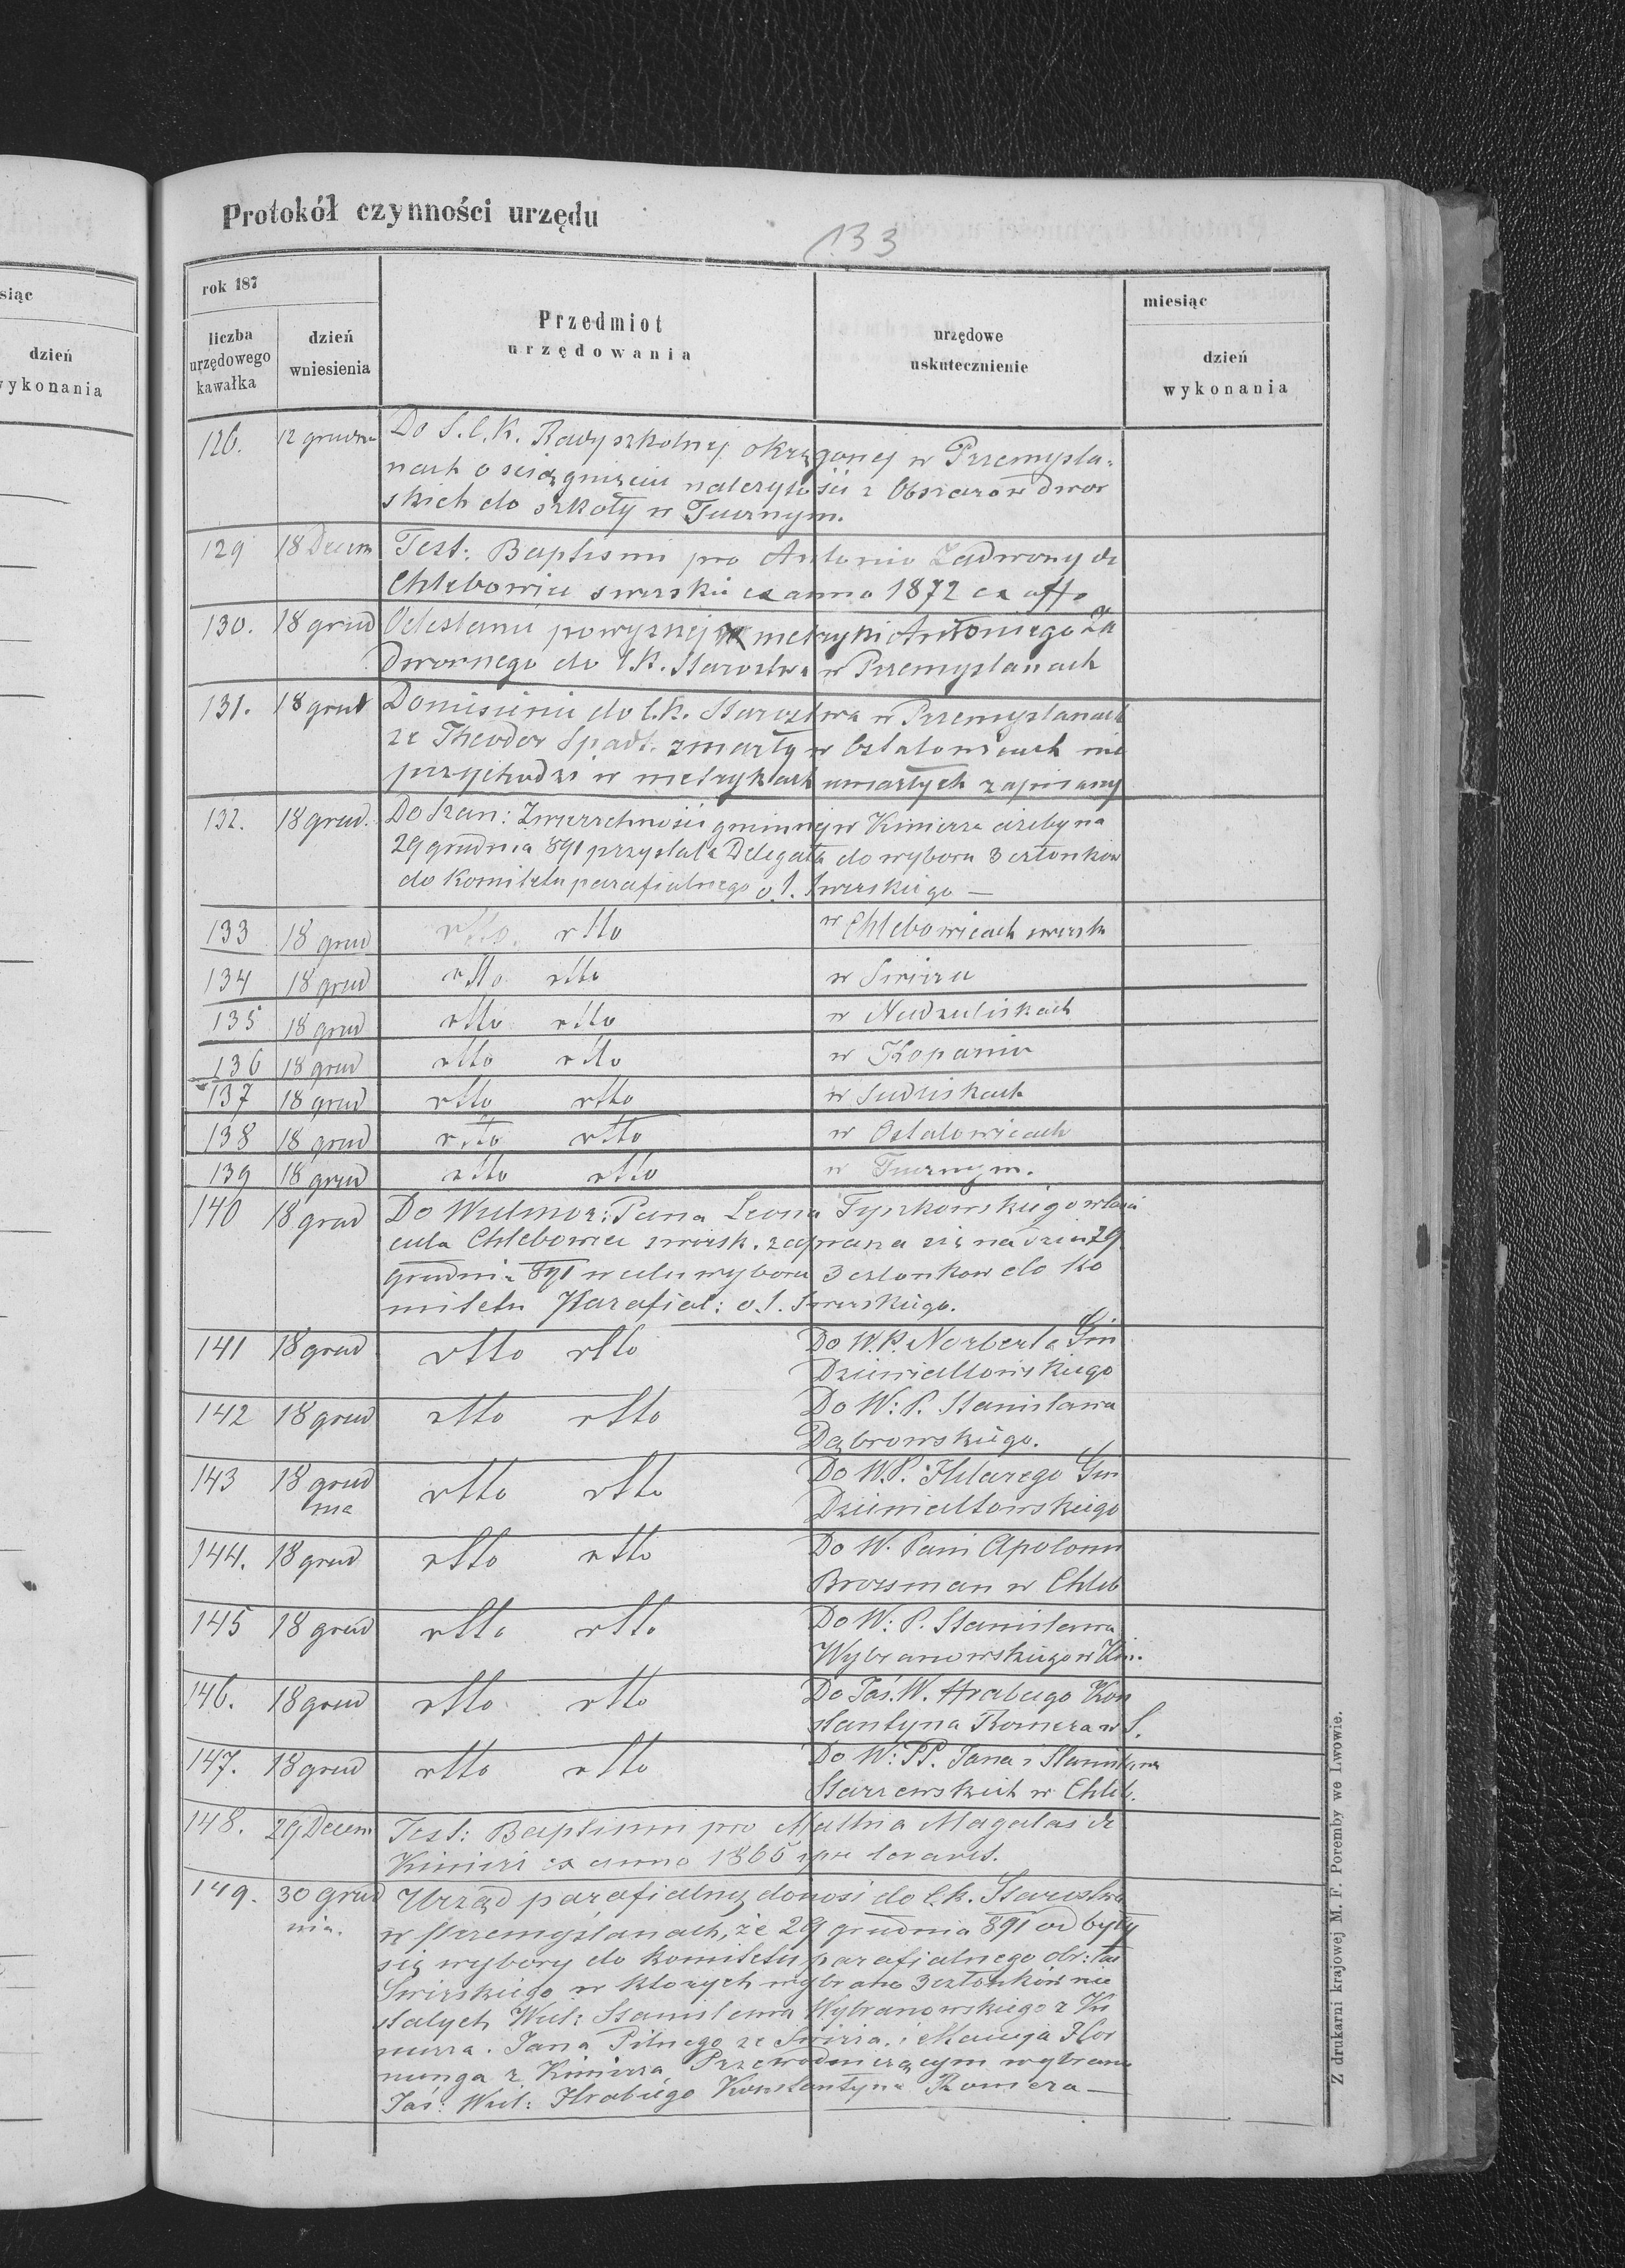 Protokół czynności urzędu
133
siąc
dzień
wykonania
rok 187
liczba
urzędowego
kawałka
dzień
wniesienia
Przedmiot
urzędowania
urzędowe
uskutecznienie
miesiąc
dzień
wykonania
126. 12 grudnia Do S. C. K. Rady szkolnej okręgowej w Przemyśla-
nach o ściągnięciu należytości z Obszarów dwor
skich do szkoły w Tucznym.
129 18 Decem Test: Baptismi pro Antonio Zadworny de
Chlebowice swirskie ex anno 1872 ex offo
130. 18 grud Odesłanie powyższej metryki Antoniego Za
Dwornego do C.K. Starostwa w Przemyslanach
131. 18 grud Doniesienie do C.K. Starostwa w Przemyslanach
ze Theodor Spadł. zmarły w Ostalowicach nie
przychodzi w metrykach umarłych zapisany
132. 18 grud. Do Szan: Zwierzchności gminnej w Kimirza ażeby na
29 grudnia 891 przysłała Delegata do wyboru 3 członków
do Komitetu parafialnego o. ł. Swirskiego —
133 18 grud dtto. dtto w Chlebowicach swirsk
134 18 grud dtto dtto w Swirzu
135 18 grud dtto dtto w Niedzieliskach
136 18 grud dtto dtto w Kopania
137 18 grud dtto dtto w Siedliskach
138 18 grud dtto dtto w Ostalowicach
139 18 grud dtto dtto w Tucznym.
140 18 grud Do Wielmoz: Pana Leona Tyszkowskiego właści
ciela Chlebowice swirsk. zaprasza się na dzień 29
grudnia 891 w celu wyboru 3 członkow do Ko
mitetu Parafial: o. ł. Swirskiego.
141 18 grud dtto dtto Do W.P. Norberta Gin
Dziewiałtowskiego
142 18 grud dtto dtto Do W: P. Stanisława
Dąbrowskiego.
143 18 grud
nia dtto dtto Do W.P. Hilarego Gin
Dziewiałtowskiego
144. 18 grud dtto dtto Do W. Pani Apolonii
Brozsman w Chleb
145 18 grud dtto dtto Do W: P. Stanisława
Wybranowskiego w Kim.
146. 18 grud dtto dtto Do Jaś. W. Hrabiego Kon
stantyna Romera w S.
147. 18 grud dtto dtto Do W: PP. Jana i Stanisława
Starzewskich w Chleb.
148. 29 Decem Test: Baptismi pro Mathia Magalas de
Kimirz ex anno 1865
149. 30 grud
nia. Urząd parafialny donosi do C.k. Starostwa
w Przemyslanach, że 29 grudnia 891 odbyły
się wybory do komitetu parafialnego obr: łac
Swirskiego w ktorych wybrano 3 członków nie
stałych Wiel: Stanislawa Wybranowskiego z Ki
mirza. Jana Pilnego ze Swirza. i Macieja Hor
nunga z Kimirza Przewodniczącym wybrano
Jaś: Wiel: Hrabiego Konstantyna Romera —
Z drukarni krajowej M. F. Poremby we Lwowie.